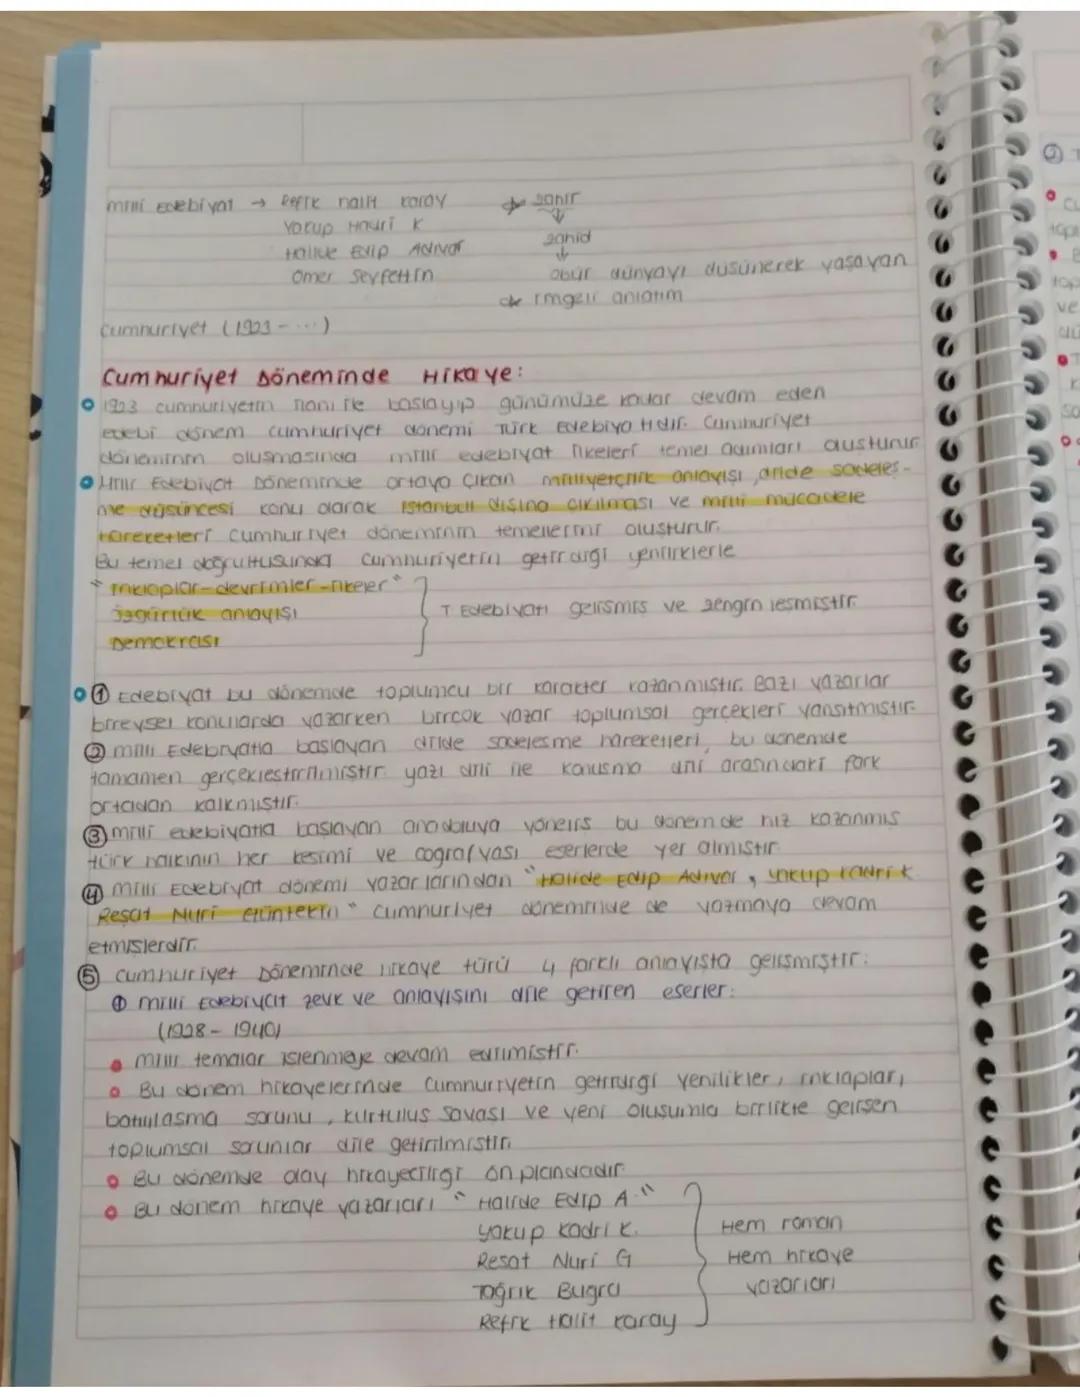 milli edebiyat → Refik halit karay
Yakup Kadri K
Halide Edip Adıvar
Ömer Seyfettin
zahir
↓
zahid
↓
öbür dünyayı düşünerek yaşayan
imgeli anlatım
Cumhuriyet (1923-...)
Cumhuriyet Döneminde Hikaye:
1923 cumhuriyetin ilanı ile başlayıp günümüze kadar devam eden
edebi dönem cumhuriyet dönemi Türk Edebiyatıdır. Cumhuriyet
döneminin oluşmasında milli edebiyat ilkeleri temel adımları oluşturur
Milli Edebiyat Döneminde ortaya çıkan milliyetçilik anlayışı, dilde sadeleş-
me düşüncesi konu olarak İstanbul dışına çıkılması ve milli mücadele
hareketleri cumhuriyet döneminin temellerini oluşturur.
Bu temel doğrultusunda cumhuriyetin getirdiği yeniliklerle
"inkılaplar-devrimler-ilkeler"
özgürlük anlayışı
Demokrasi
T Edebiyatı gelişmiş ve zenginleşmiştir.
① Edebiyat bu dönemde toplumcu bir karakter kazanmıştır. Bazı yazarlar
bireysel konularda yazarken birçok yazar toplumsal gerçekleri yansıtmıştır.
② milli Edebiyatla başlayan dilde sadeleşme hareketleri, bu dönemde
tamamen gerçekleştirilmiştir. yazı dili ile konuşma dili arasındaki fark
ortadan kalkmıştır.
③ milli edebiyatla başlayan anadoluya yöneliş bu dönemde hız kazanmış
türk halkının her kesimi ve coğrafyası eserlerde yer almıştır
④ milli Edebiyat dönemi yazarlarından "Halide Edip Adıvar, yakup kadri k
Reşat Nuri Güntekin" cumhuriyet döneminde de yazmaya devam
etmişlerdir.
⑤ Cumhuriyet Döneminde hikaye türü 4 farklı anlayışta gelişmiştir:
① milli Edebiyat zevk ve anlayışını dile getiren eserler:
(1928-1940)
milli temalar işlenmeye devam edilmiştir.
Bu dönem hikayelerinde Cumhuriyetin getirdiği yenilikler, inkılaplar,
batılılaşma sorunu, kurtuluş savaşı ve yeni oluşumla birlikte gelişen
toplumsal sorunlar dile getirilmiştir.
Bu dönemde olay hikayeciliği ön plandadır.
Bu dönem hikaye yazarları "Halide Edip A."
yakup kadri k.
Reşat Nuri G
Tağrık Buğra
Refik Halit karay
Hem roman
Hem hikaye
yazarları